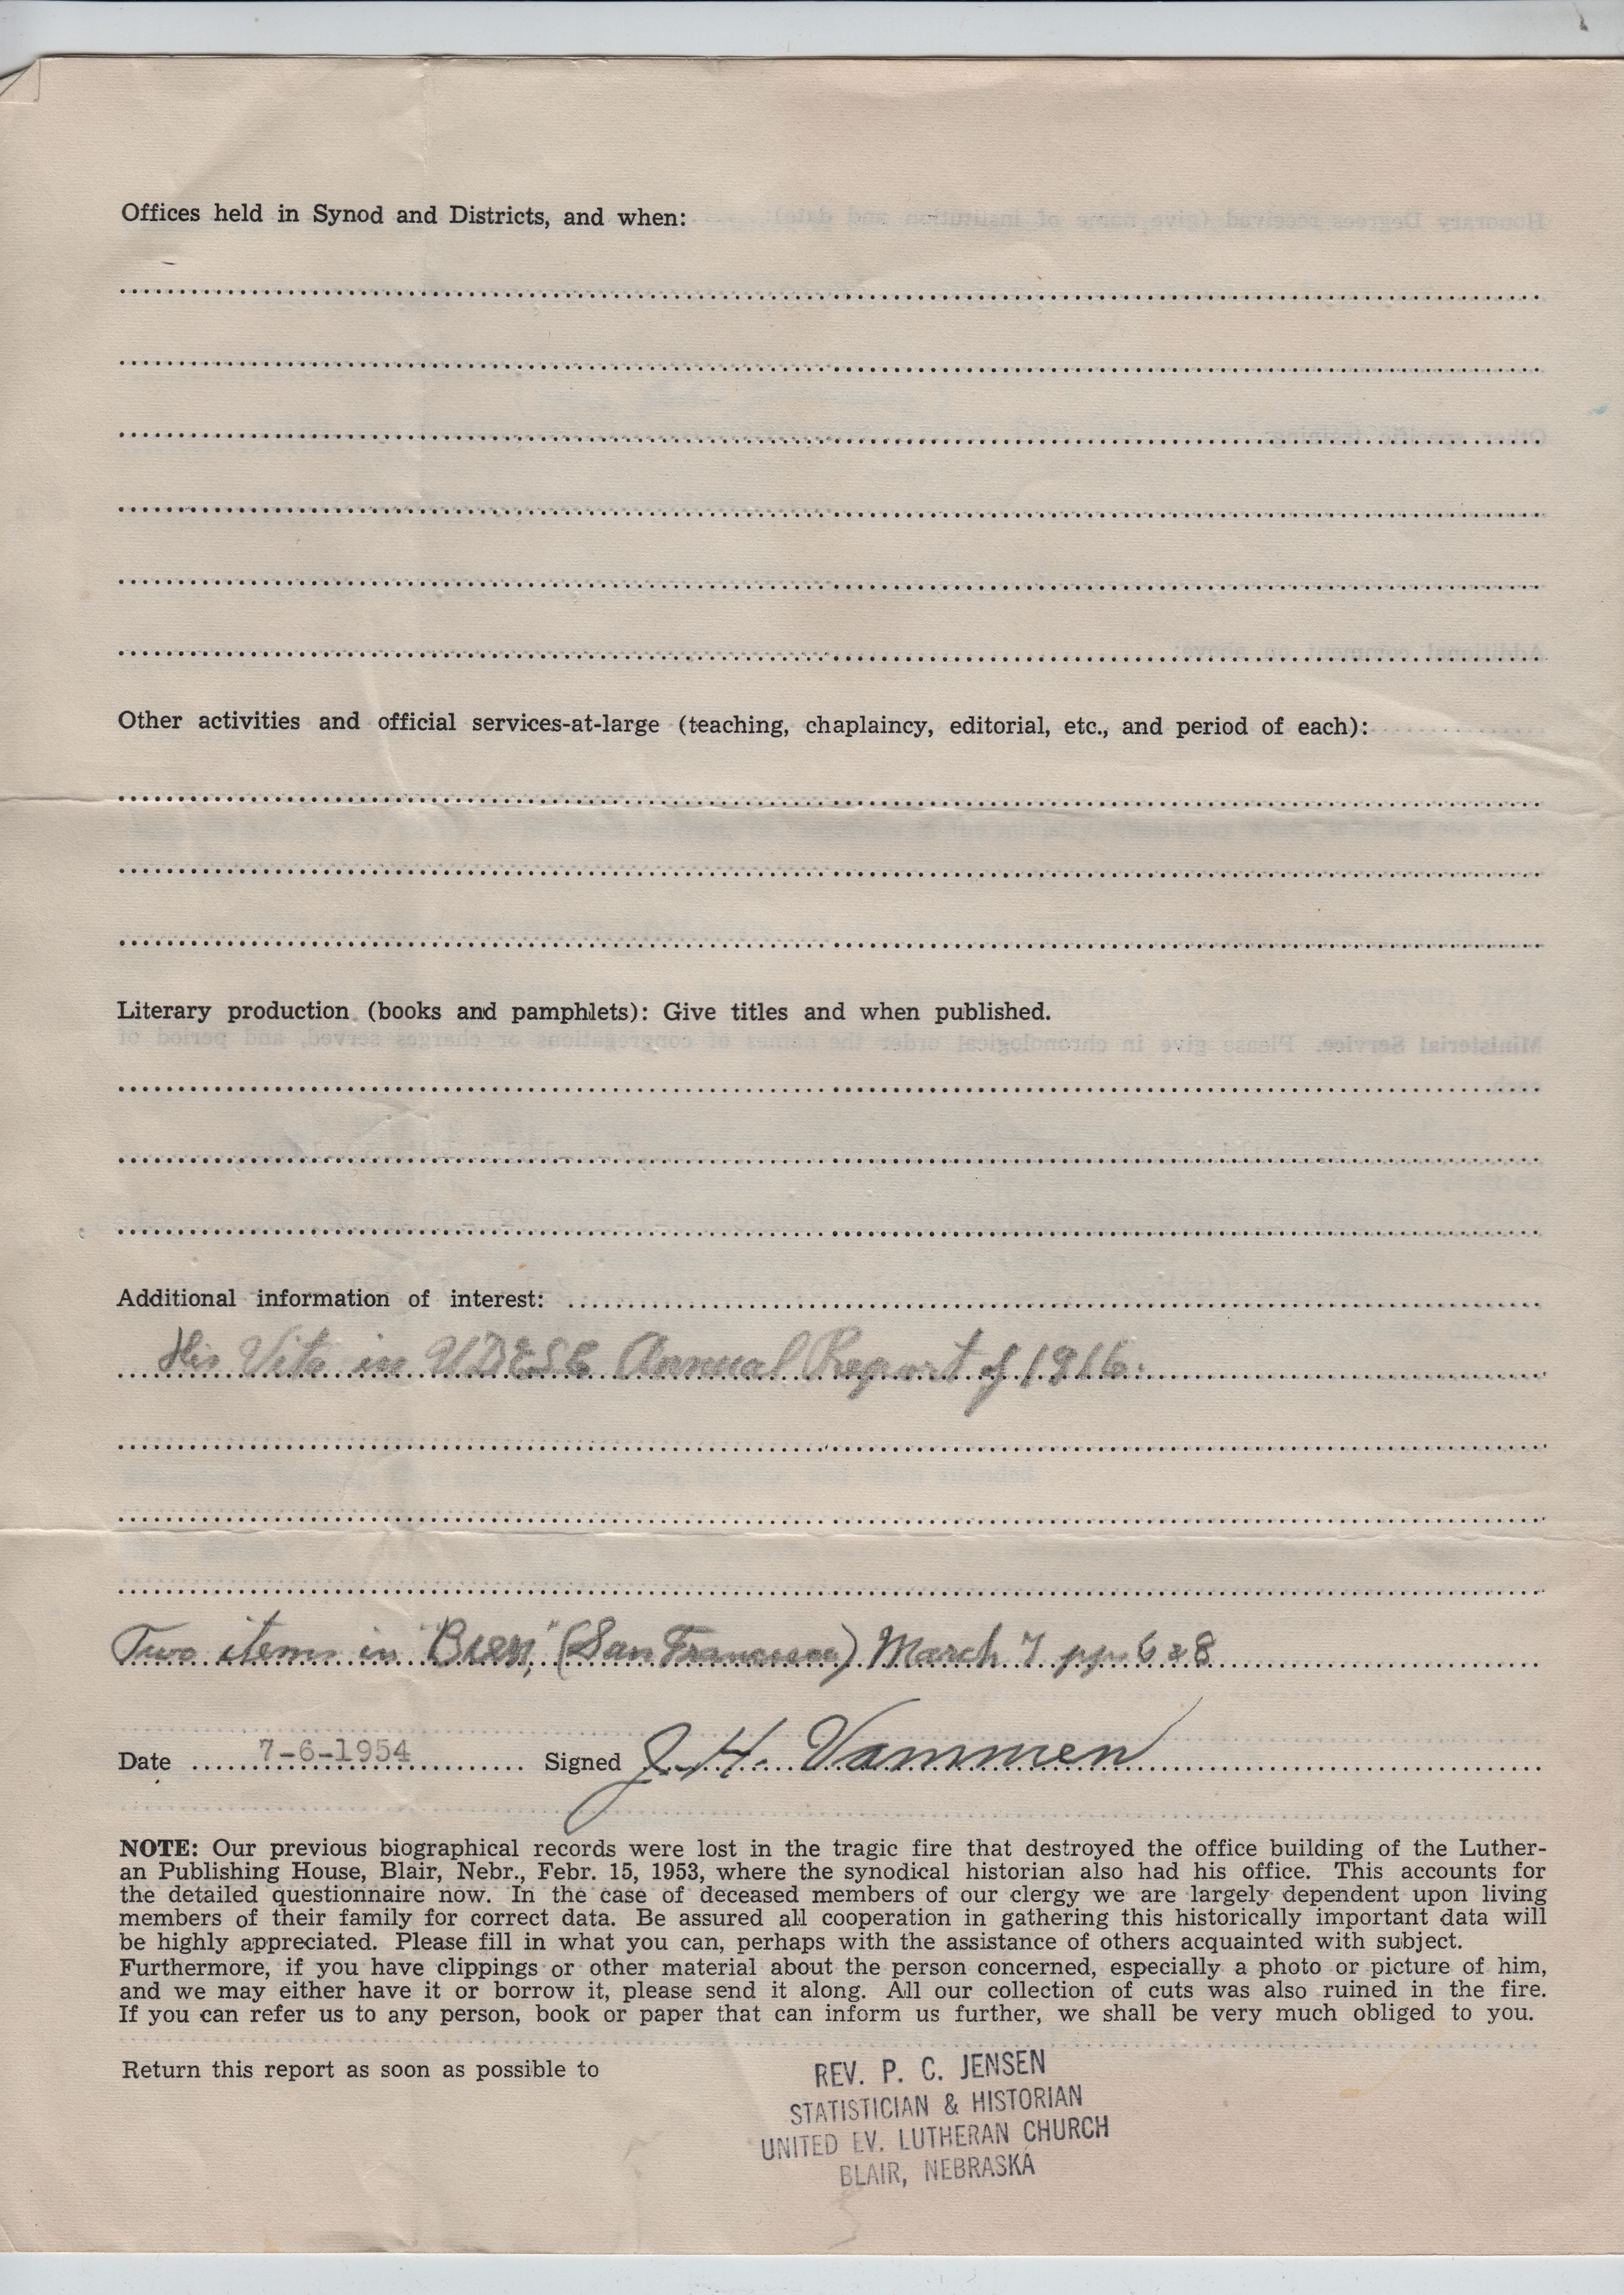 Offices held in Synod and Districts, and when:
Other activities and official services-at-large (teaching, chaplaincy, editorial, etc., and period of each):
Literary production (books and pamphlets): Give titles and when published.
Additional information of interest:
His Vita in UDELC Annual Report of 1916.
Two items in "Bien," (San Francisco) March 7 pp. 6 & 8
Date 7-6-1954 Signed J. H. Vammen
NOTE: Our previous biographical records were lost in the tragic fire that destroyed the office building of the Luther-
an Publishing House, Blair, Nebr., Febr. 15, 1953, where the synodical historian also had his office. This accounts for
the detailed questionnaire now. In the case of deceased members of our clergy we are largely dependent upon living
members of their family for correct data. Be assured all cooperation in gathering this historically important data will
be highly appreciated. Please fill in what you can, perhaps with the assistance of others acquainted with subject.
Furthermore, if you have clippings or other material about the person concerned, especially a photo or picture of him,
and we may either have it or borrow it, please send it along. All our collection of cuts was also ruined in the fire.
If you can refer us to any person, book or paper that can inform us further, we shall be very much obliged to you.
Return this report as soon as possible to
REV. P. C. JENSEN
STATISTICIAN & HISTORIAN
UNITED EV. LUTHERAN CHURCH
BLAIR, NEBRASKA